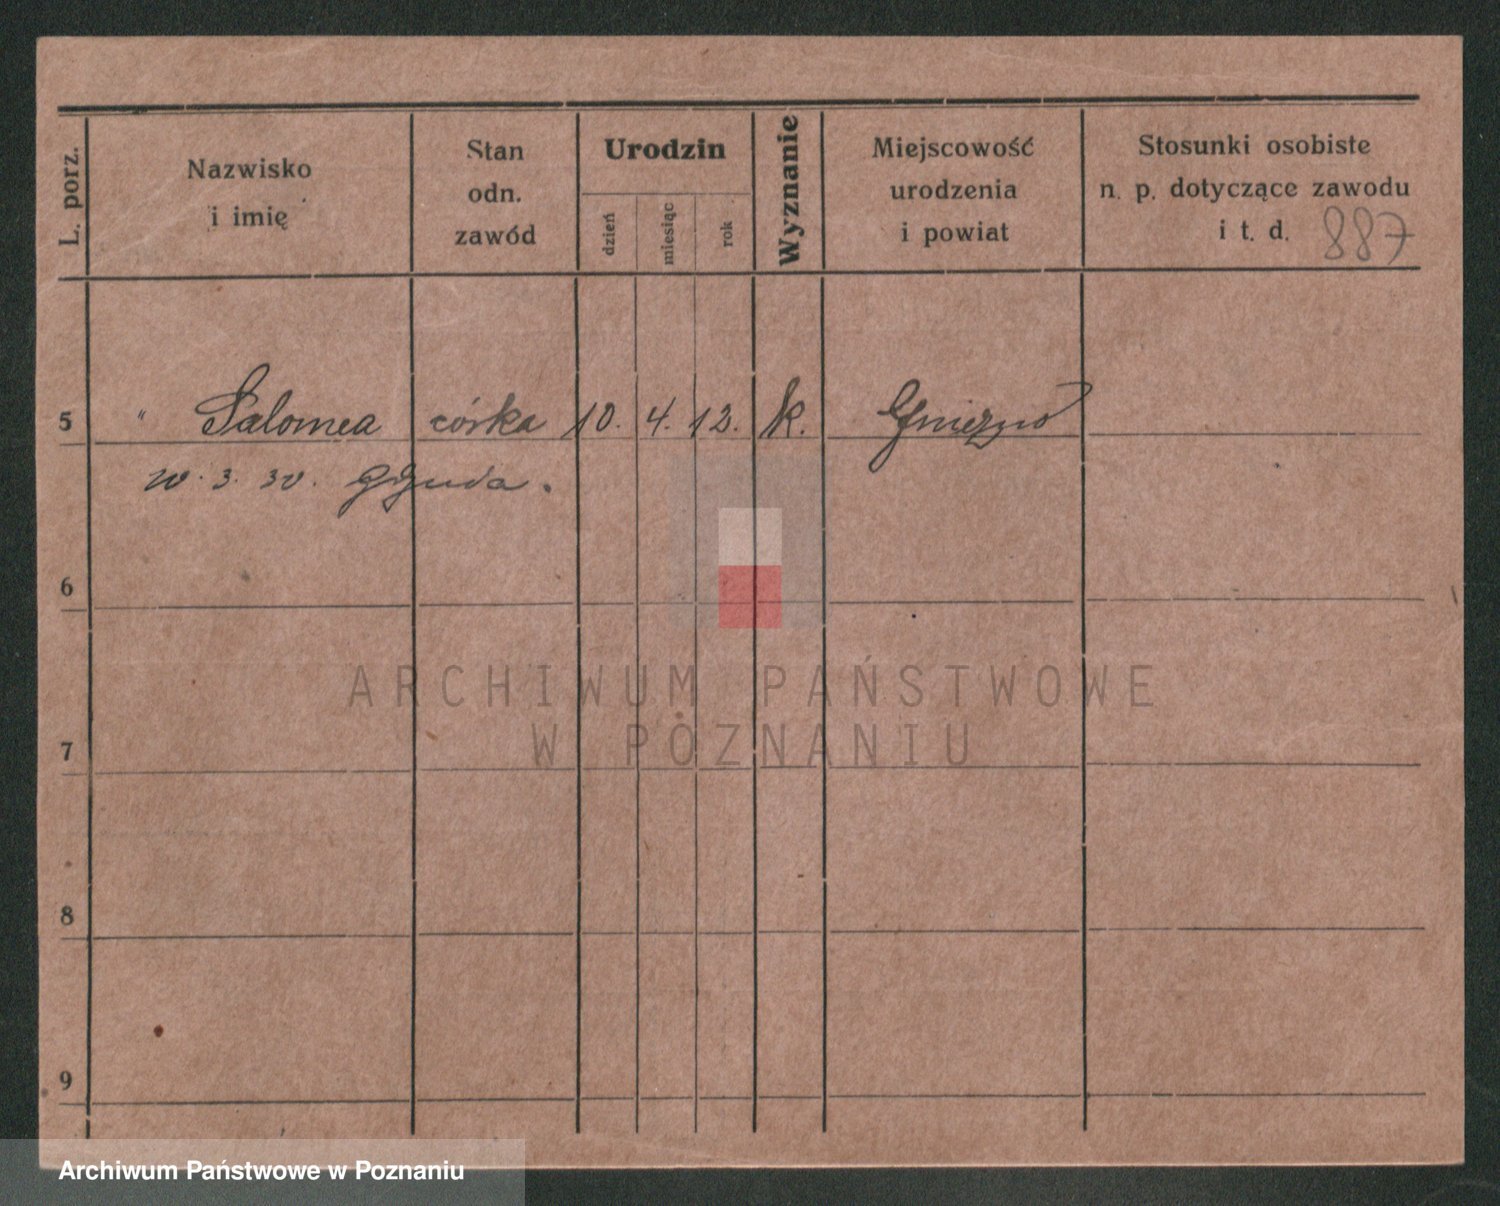 L. porz.
Nazwisko
i imię
Stan
odn.
zawód
Urodzin
dzień
miesiąc
rok
Wyznanie
Miejscowość
urodzenia
i powiat
Stosunki osobiste
n. p. dotyczące zawodu
i t. d.
887
5 " Salomea córka 10. 4. 12. k. Gniezno
w. 3. 30.
6
7
8
9
ARCHIWUM PAŃSTWOWE
W POZNANIU
Archiwum Państwowe w Poznaniu